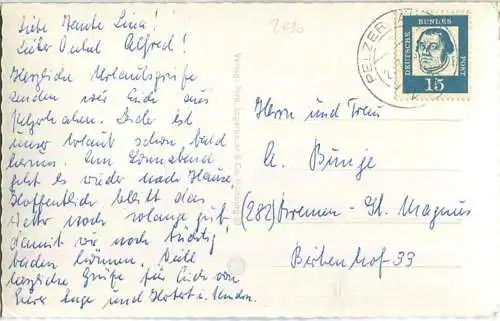 Liebe Tante Lina!
Lieber Onkel Alfred!
Herzliche Urlaubsgrüße
senden wir Euch aus
Pelzerhaken. Leider ist
unser Urlaub schon bald
herum. Am Sonnabend
geht es wieder nach Hause.
Hoffentlich bleibt das
Wetter noch solange gut,
damit wir noch tüchtig
baden können. Viele
herzliche Grüße für Euch von
Eurer Inge und Horst u. Kindern.
2030
Verlag
PELZERHAKEN
DEUTSCHE
BUNDES
POST
15
Herrn und Frau
A. Bunje
(282) Bremen - St. Magnus
Birkenhof 33